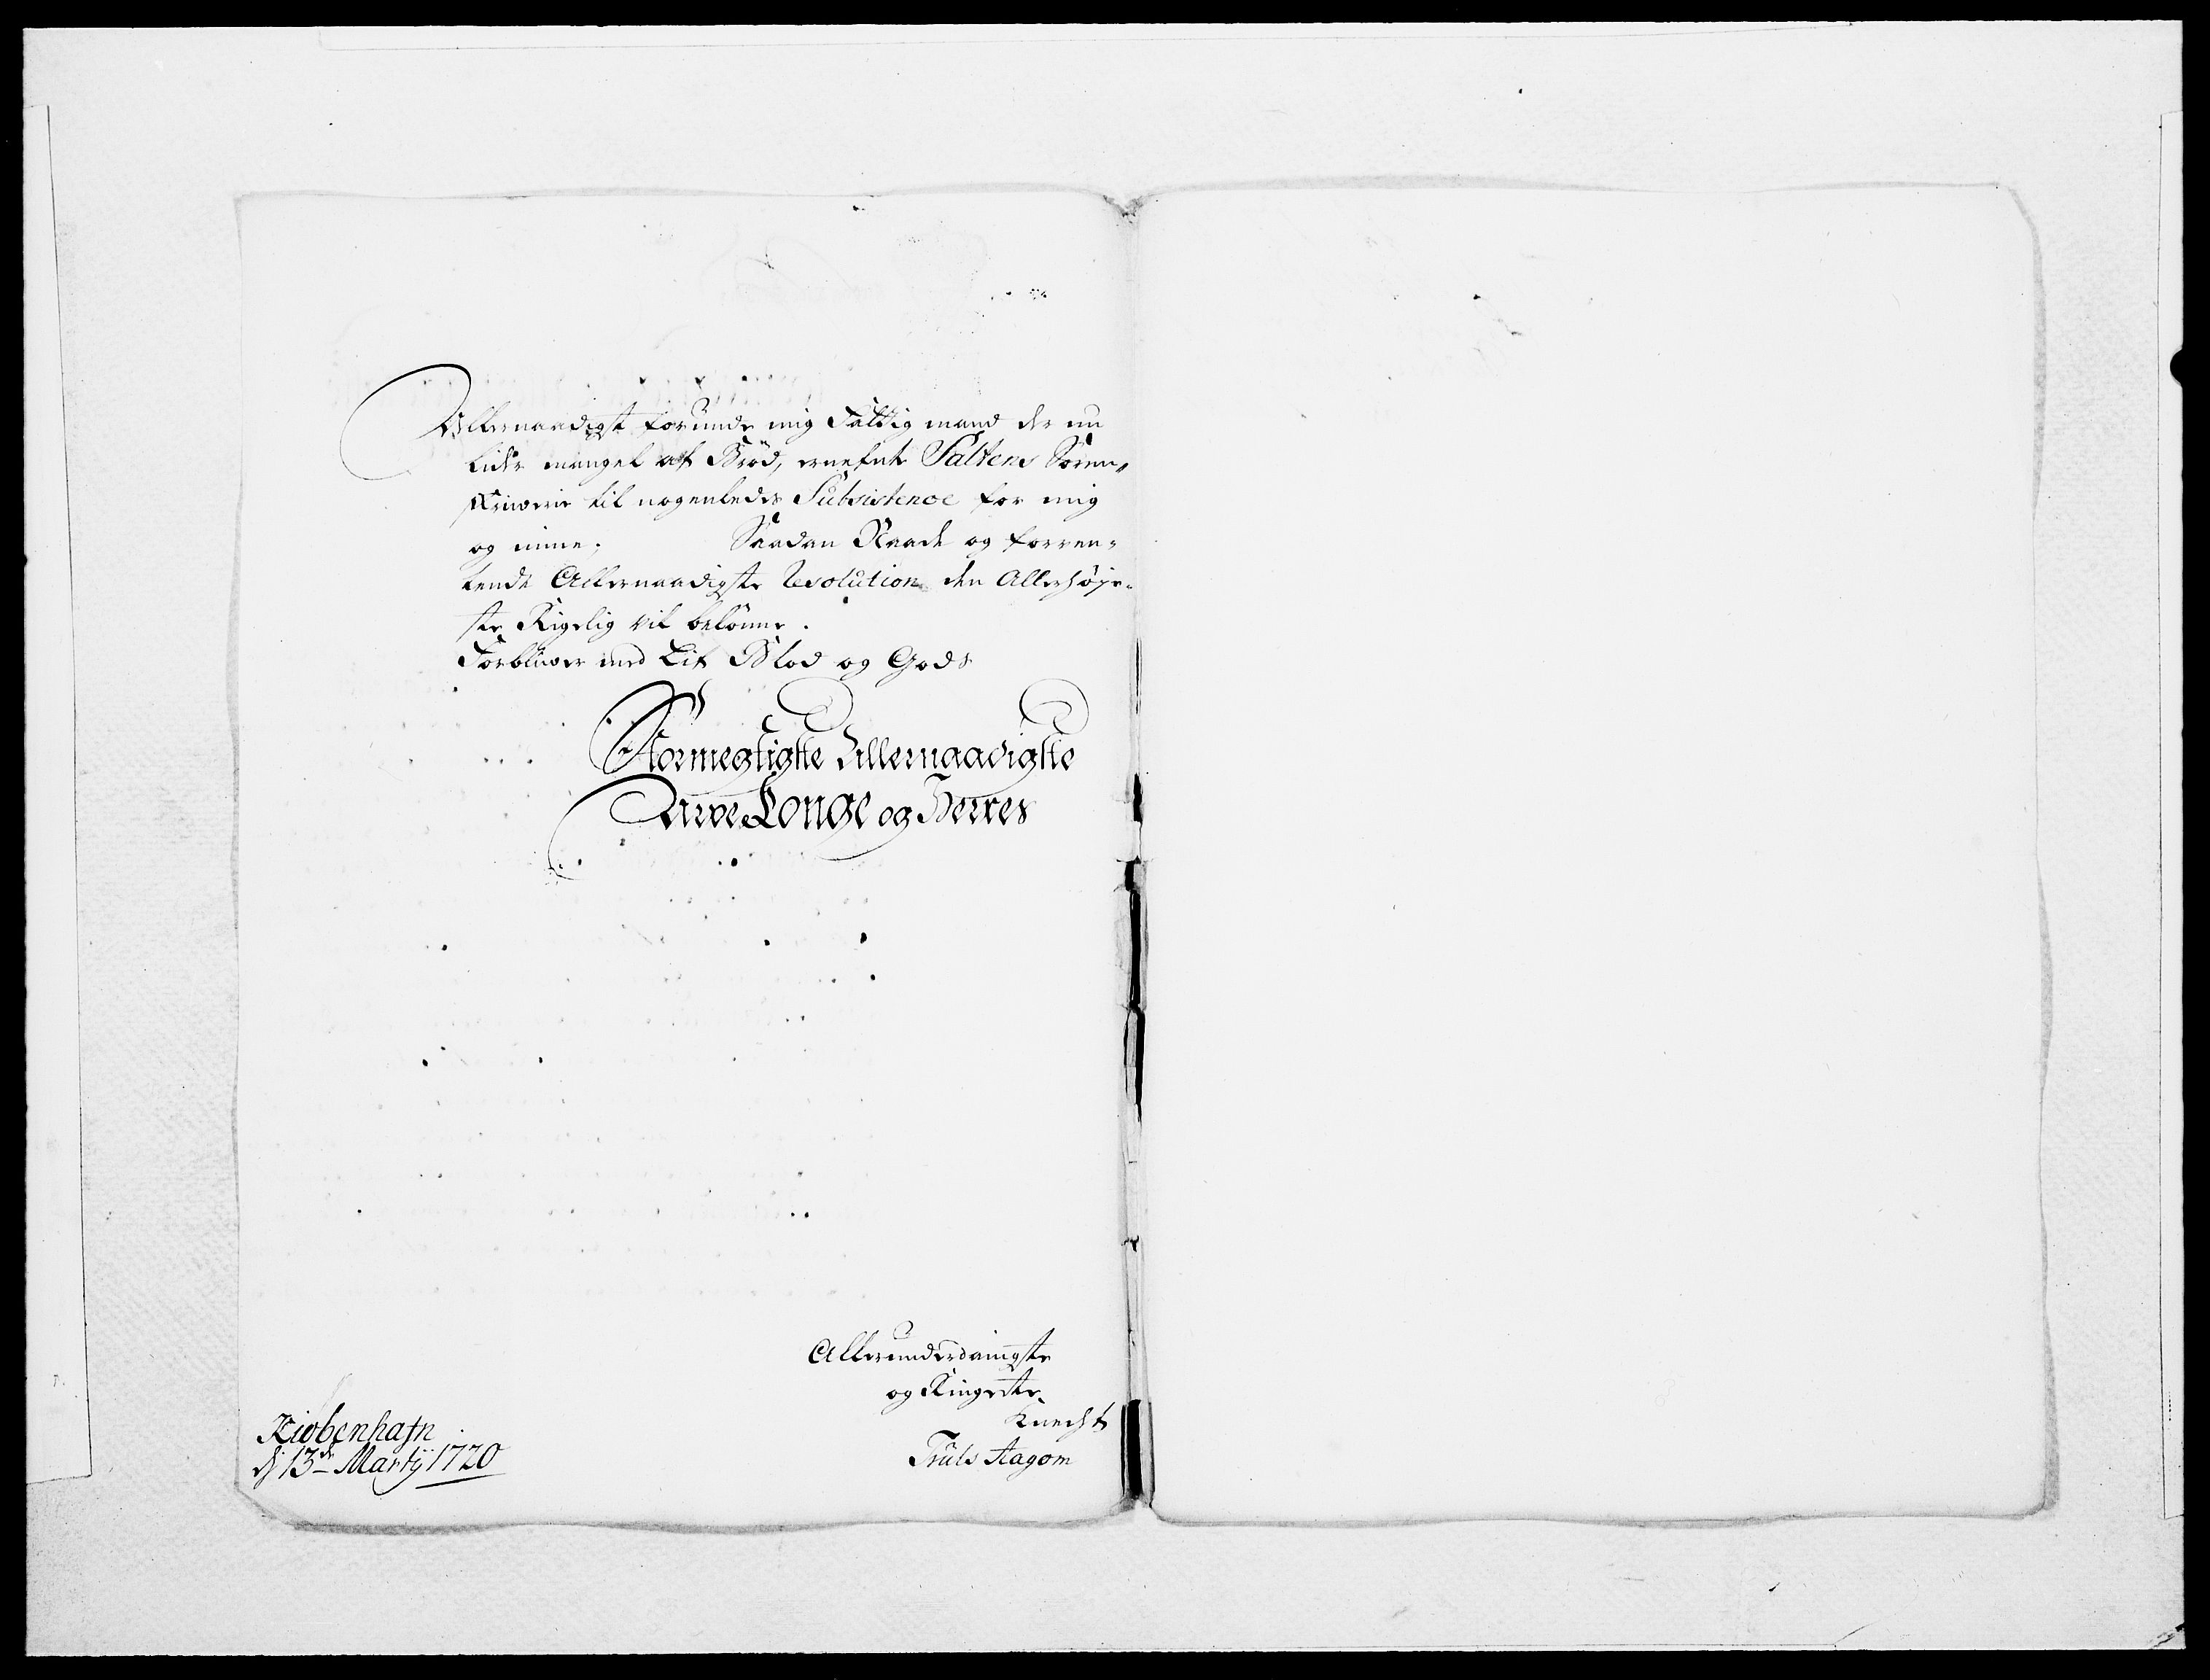 Allernaadigst forunde mig Fattig mand der nu
lider mangel af Brød, ernefnte Saltens Soren,,
skriverie til nogenledes Subsistence for mig
og mine; Saadan Naade og forven,,
tende Allernaadigste Resolution den Allerhøje,,
ste Rigelig vil belønne.
Forbliver med Lif Blod og Gods
Stormegtigste Allernaadigste
Arve Konge og Herres
Allerunderdanigste
og Ringeste
Knecht
Truls Aagom
Kiøbenhafn
d 13de Martij 1720